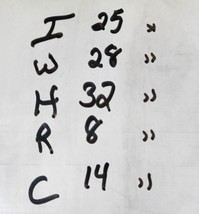 I 25 "
W 28 "
H 32 "
R 8 "
C 14 "